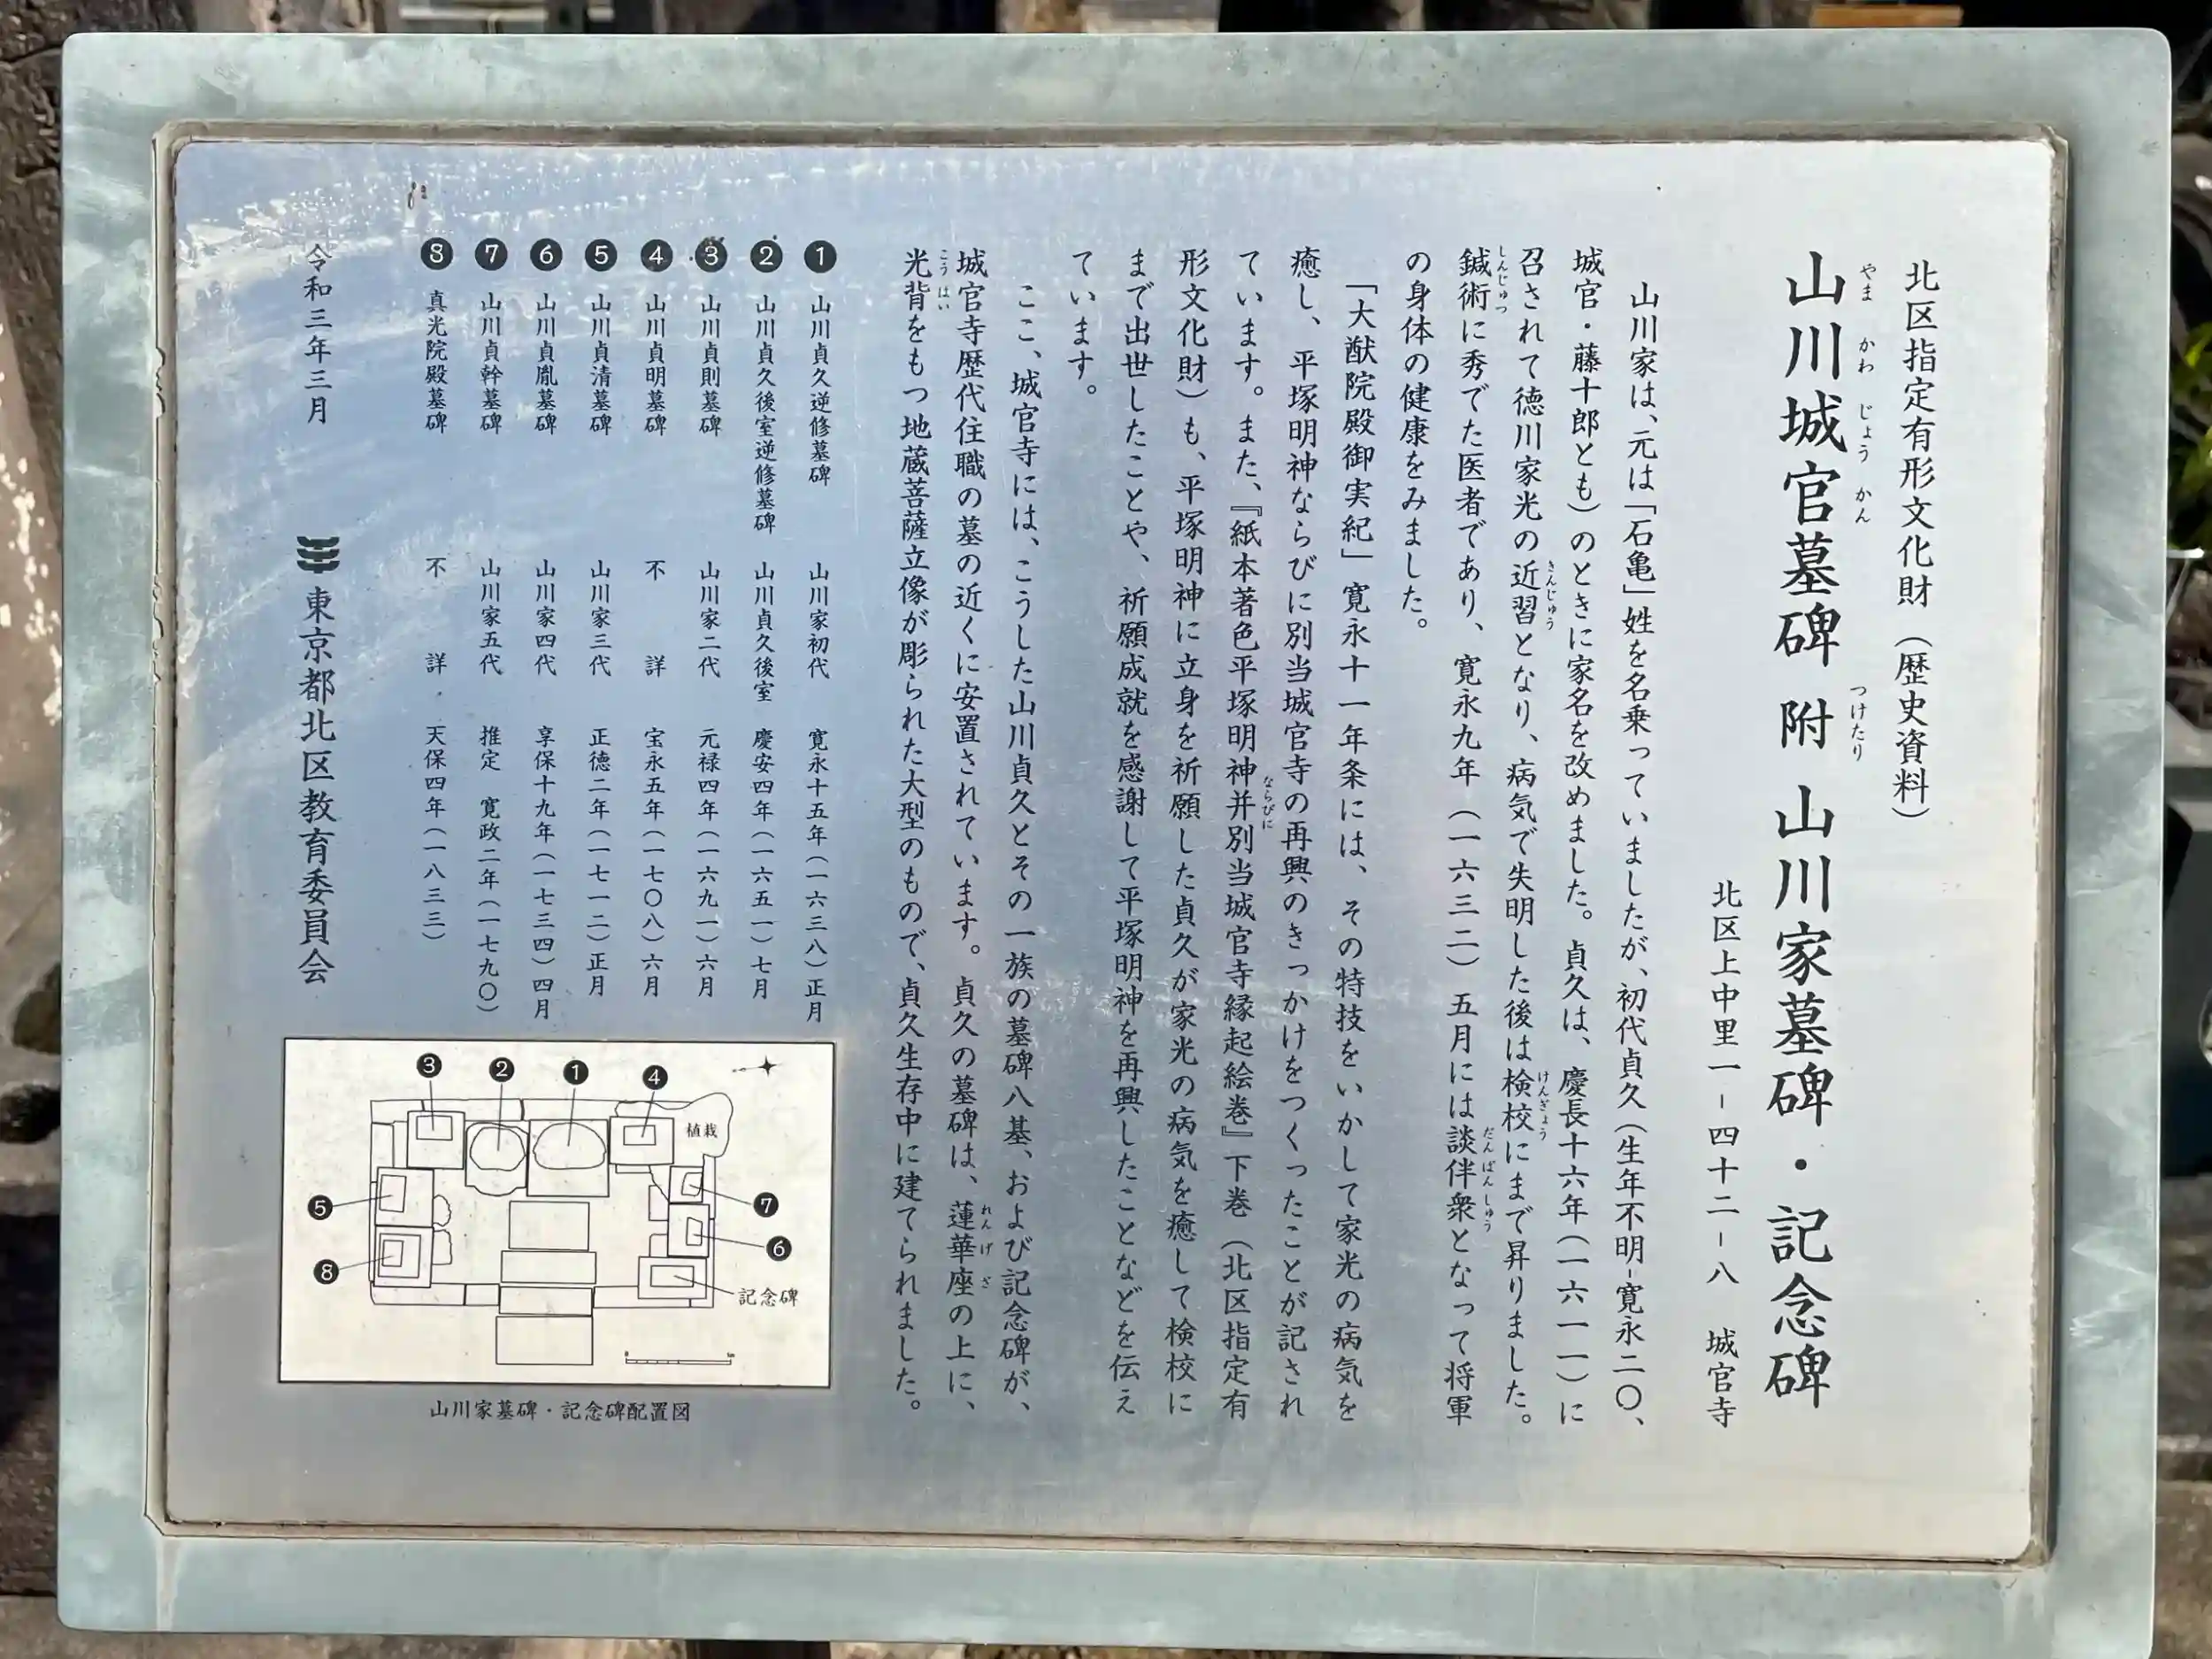 北区指定有形文化財（歴史資料）
山川城官墓碑 附 山川家墓碑・記念碑
やま かわ じょう かん
つけたり
北区上中里一－四十二－八 城官寺
山川家は、元は「石亀」姓を名乗っていましたが、初代貞久（生年不明-寛永二〇、
城官・藤十郎とも）のときに家名を改めました。貞久は、慶長十六年（一六一一）に
召されて徳川家光の近習となり、病気で失明した後は検校にまで昇りました。
きんじゅう
けんぎょう
鍼術に秀でた医者であり、寛永九年（一六三二）五月には談伴衆となって将軍
しんじゅつ
だんばんしゅう
の身体の健康をみました。
「大猷院殿御実紀」寛永十一年条には、その特技をいかして家光の病気を
癒し、平塚明神ならびに別当城官寺の再興のきっかけをつくったことが記され
ています。また、『紙本著色平塚明神并別当城官寺縁起絵巻』下巻（北区指定有
ならびに
形文化財）も、平塚明神に立身を祈願した貞久が家光の病気を癒して検校に
まで出世したことや、祈願成就を感謝して平塚明神を再興したことなどを伝え
ています。
ここ、城官寺には、こうした山川貞久とその一族の墓碑八基、および記念碑が、
城官寺歴代住職の墓の近くに安置されています。貞久の墓碑は、蓮華座の上に、
れんげざ
光背をもつ地蔵菩薩立像が彫られた大型のもので、貞久生存中に建てられました。
こうはい
❶ 山川貞久逆修墓碑 山川家初代 寛永十五年（一六三八）正月
❷ 山川貞久後室逆修墓碑 山川貞久後室 慶安四年（一六五一）七月
❸ 山川貞則墓碑 山川家二代 元禄四年（一六九一）六月
❹ 山川貞明墓碑 不詳 宝永五年（一七〇八）六月
❺ 山川貞清墓碑 山川家三代 正徳二年（一七一二）正月
❻ 山川貞胤墓碑 山川家四代 享保十九年（一七三四）四月
❼ 山川貞幹墓碑 山川家五代 推定 寛政二年（一七九〇）
❽ 真光院殿墓碑 不詳 天保四年（一八三三）
令和三年三月
東京都北区教育委員会
❸ ❷ ❶ ❹
植栽
❺
❼
❻
❽
記念碑
0 1m
山川家墓碑・記念碑配置図